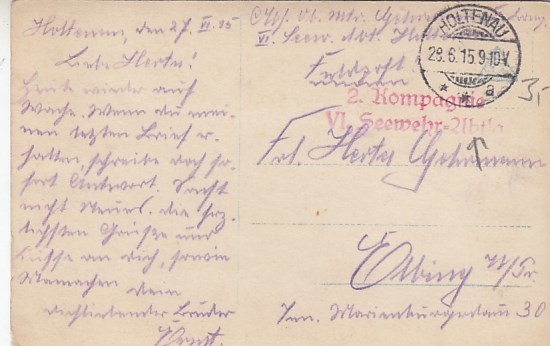 Holtenau, den 27. VI. 15
Liebe Herta!
Heute wieder auf
Wache. Wenn du mei-
nen letzten Brief er-
halten, schreibe doch so-
fort Antwort. Sonst
nicht Neues. die herz-
lichsten Grüsse und
Küsse an dich, sowie
Mamachen dein
dichliebender Bruder
Ernst.
VI. Seew. Abt.
Feldpost
HOLTENAU
28.6.15.9-10V.
* * a
2. Kompagnie
VI. Seewehr-Abtlg
Frl. Herta Gehrmann
Elbing W/Pr.
Inn. Marienburgerdamm 30